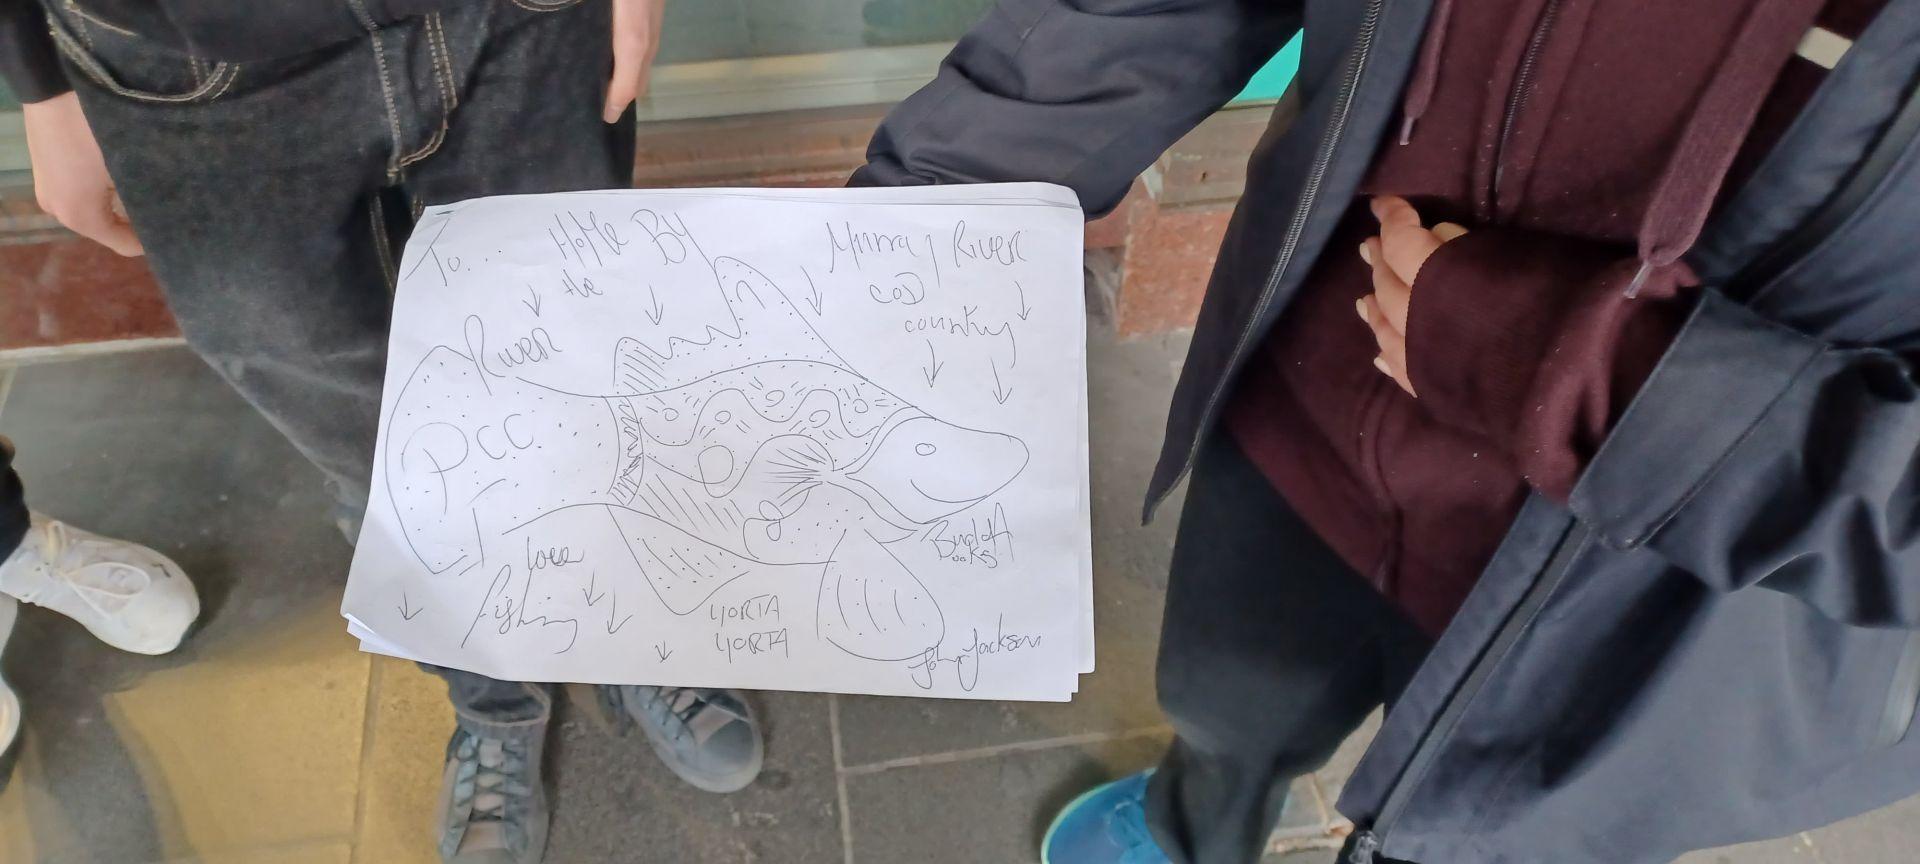 To....
Home By
the
River
Murray River
COD
country
PCC
love
fishing
YORTA
YORTA
John Jackson